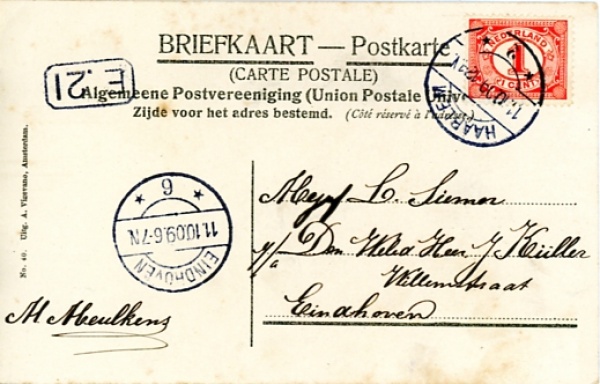 BRIEFKAART — Postkarte
(CARTE POSTALE)
Algemeene Postvereeniging (Union Postale Univ
Zijde voor het adres bestemd. (Côté réservé à l'adresse
E.21
NEDERLAND
1
CENT
HAARLEM
11.10.09
6
11.10.09.6-7N
EINDHOVEN
No. 40. Uitg. A. Vigevano, Amsterdam.
Mejuf L. Siemer
p/a Den WelEd Heer J Küller
Willemstraat
Eindhoven
M. Meulkens